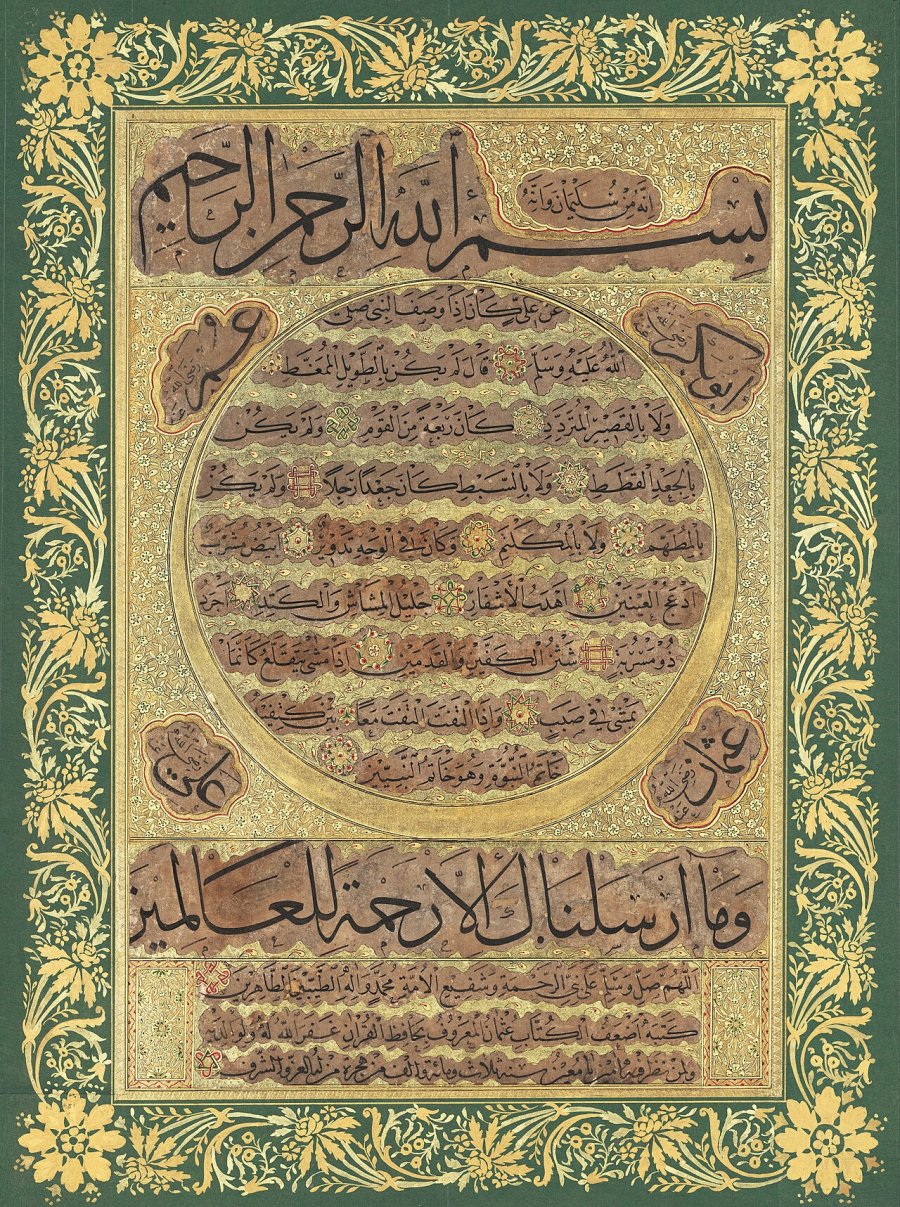 انه من سليمان وانه
بسم الله الرحمن الرحيم
ابو بكر رضي الله عنه
عمر رضي الله عنه
عن علي كان اذا وصف النبي صلى
الله عليه وسلم قال لم يكن بالطويل الممغط
ولا بالقصير المتردد كان ربعة من القوم ولم يكن
بالجعد القطط ولا بالسبط كان جعدا رجلا ولم يكن
بالمطهم ولا بالمكلثم وكان في الوجه تدوير ابيض مشرب
ادعج العينين اهدب الاشفار جليل المشاش والكتد اجرد
ذو مسربة شثن الكفين والقدمين اذا مشى يتقلع كانما
يمشي في صبب واذا التفت التفت معا بين كتفيه
خاتم النبوة وهو خاتم النبيين
عثمان رضي الله عنه
علي رضي الله عنه
وما ارسلناك الا رحمة للعالمين
اللهم صل وسلم على نبي الرحمة وشفيع الامة محمد واله الطيبين الطاهرين
كتبه اضعف الكتاب عثمان المعروف بحافظ القران غفر الله له ولوالديه
ولمن نظر فيه سنة ثلاث ومائة والف من هجرة من له العز والشرف